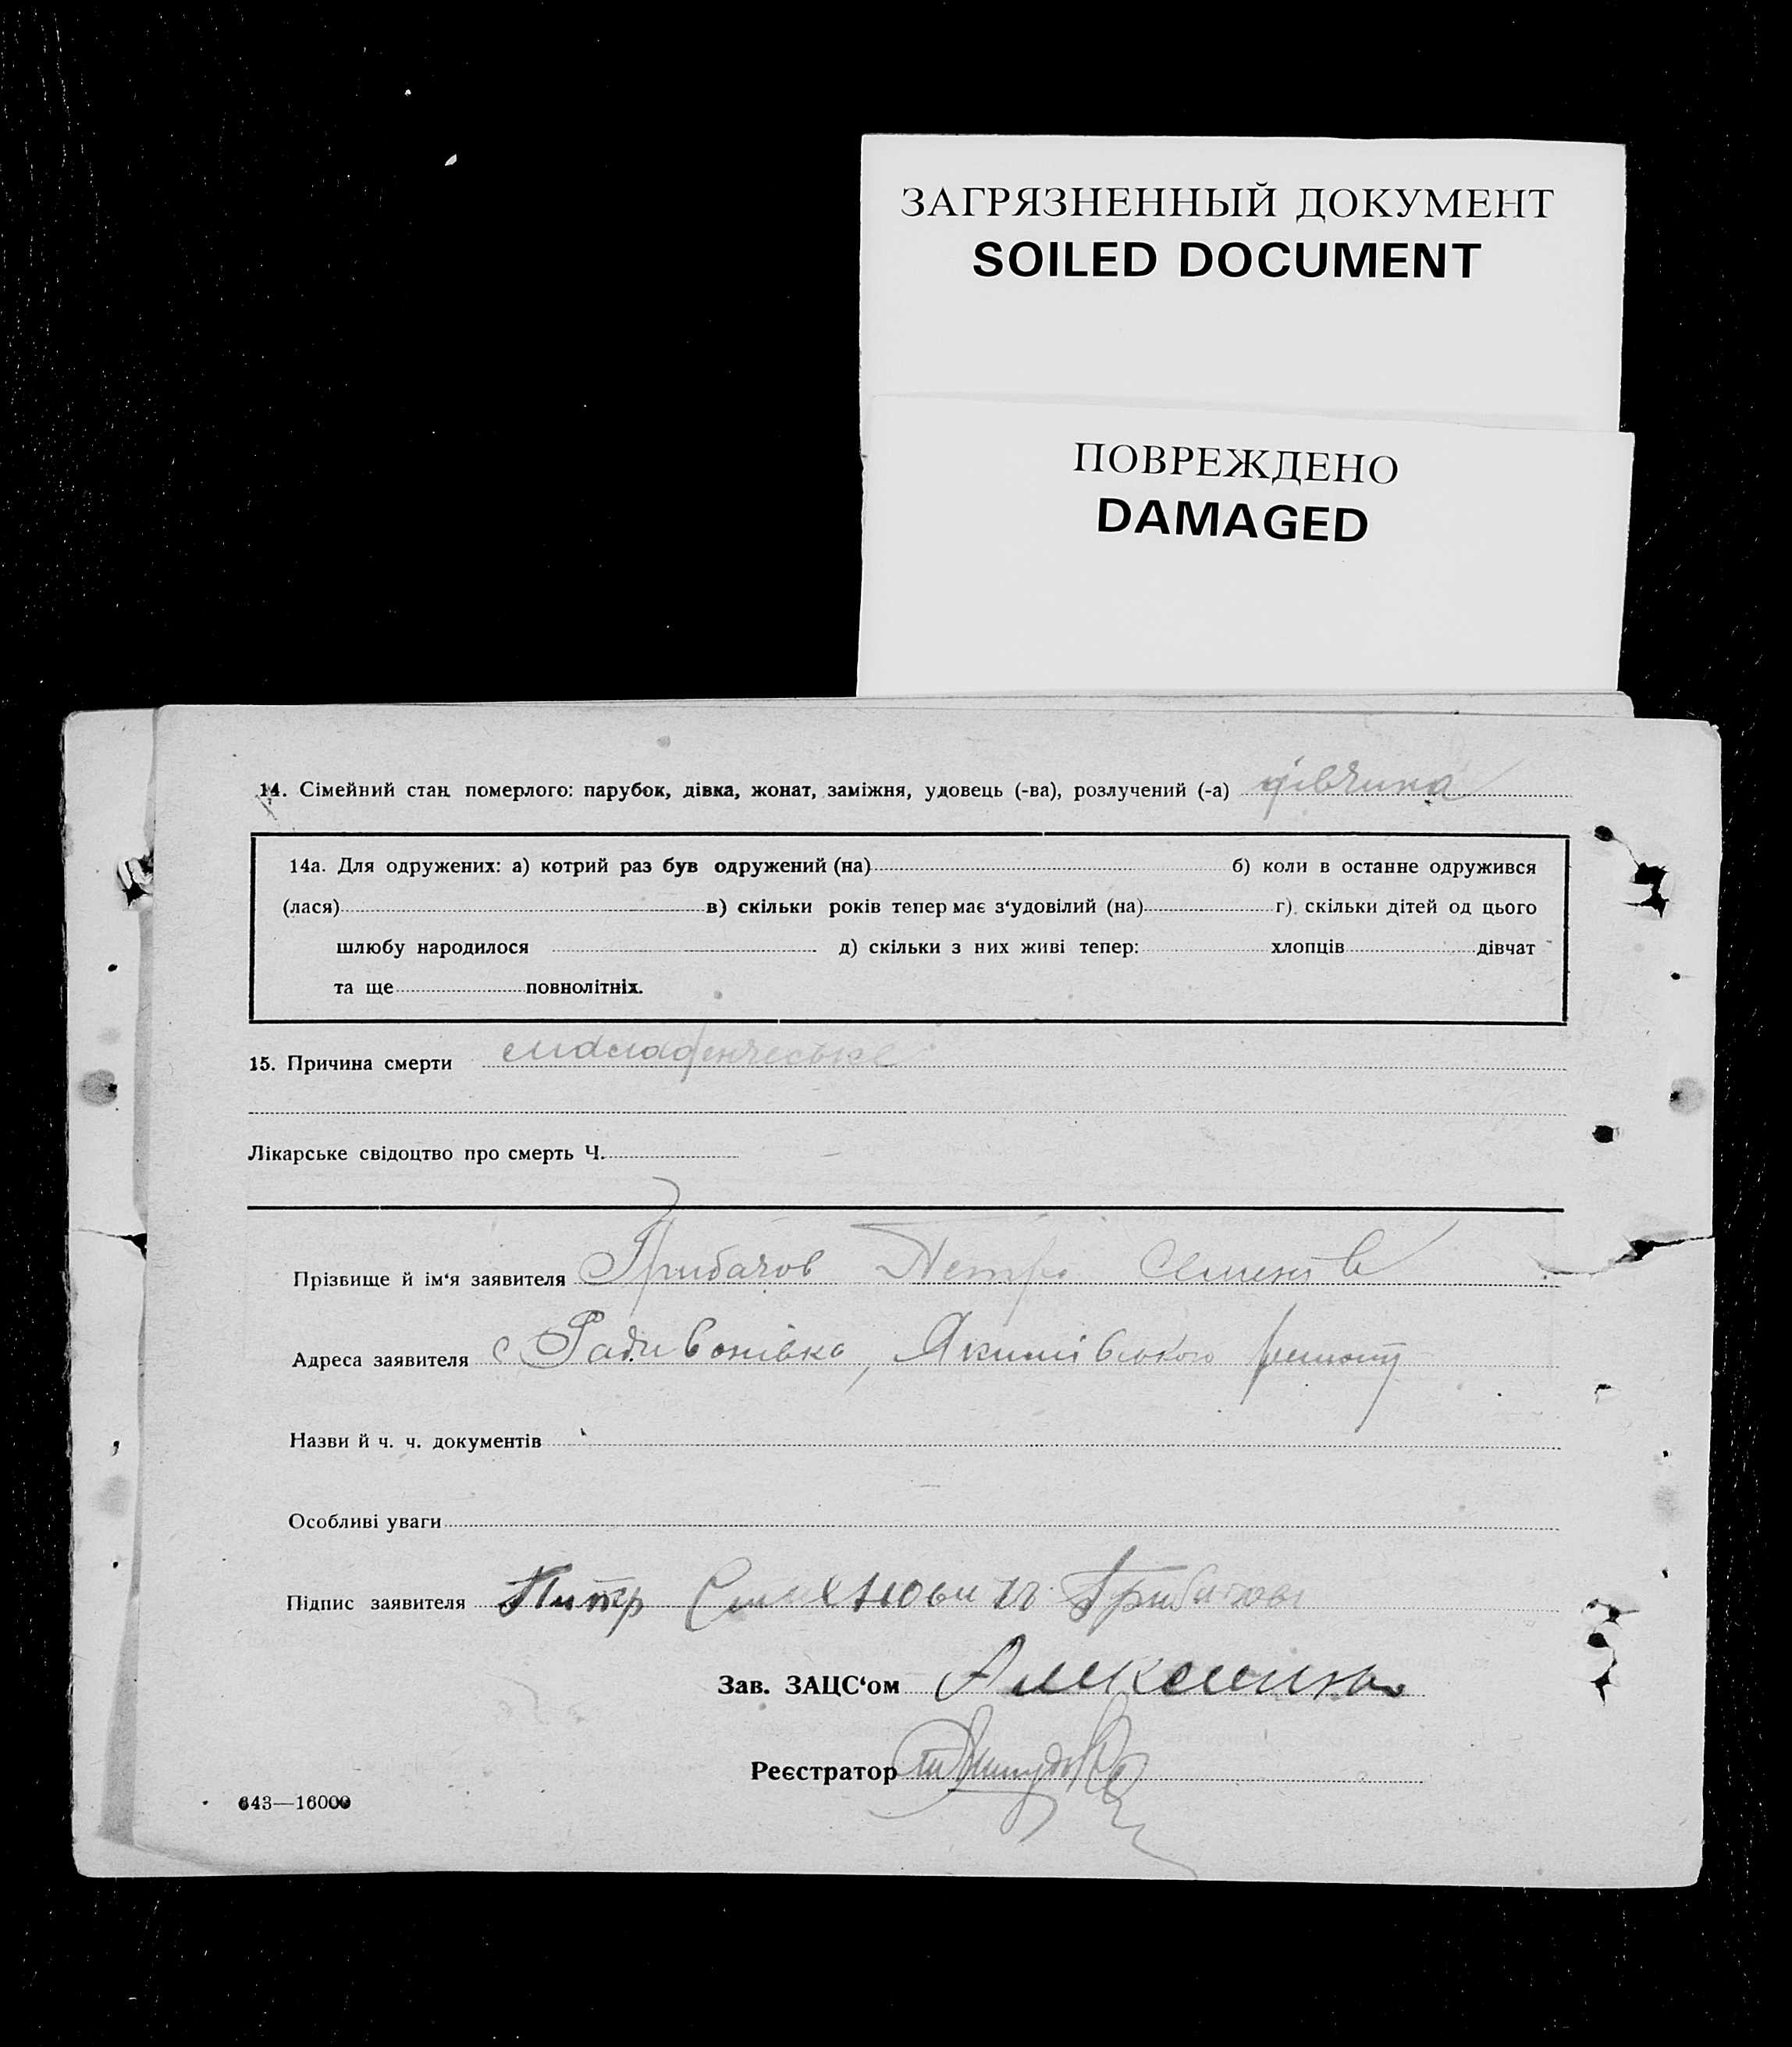 ЗАГРЯЗНЕННЫЙ ДОКУМЕНТ
SOILED DOCUMENT
ПОВРЕЖДЕНО
DAMAGED
14. Сімейний стан померлого: парубок, дівка, жонат, заміжня, удовець (-ва), розлучений (-а) дівчина
14а. Для одружених: а) котрий раз був одружений (на) б) коли в останне одружився
(лася) в) скільки років тепер має з‘удовілий (на) г) скільки дітей од цього
шлюбу народилося д) скільки з них живі тепер: хлопців дівчат
та ще повнолітніх.
15. Причина смерти
Лікарське свідоцтво про смерть Ч.
Прізвище й ім‘я заявителя Грибачов Петро Семенів
Адреса заявителя с Радивонівка, Якимівського
Назви й ч. ч. документів
Особливі уваги
Підпис заявителя
Зав. ЗАЦС‘ом
Реєстратор
643—16000